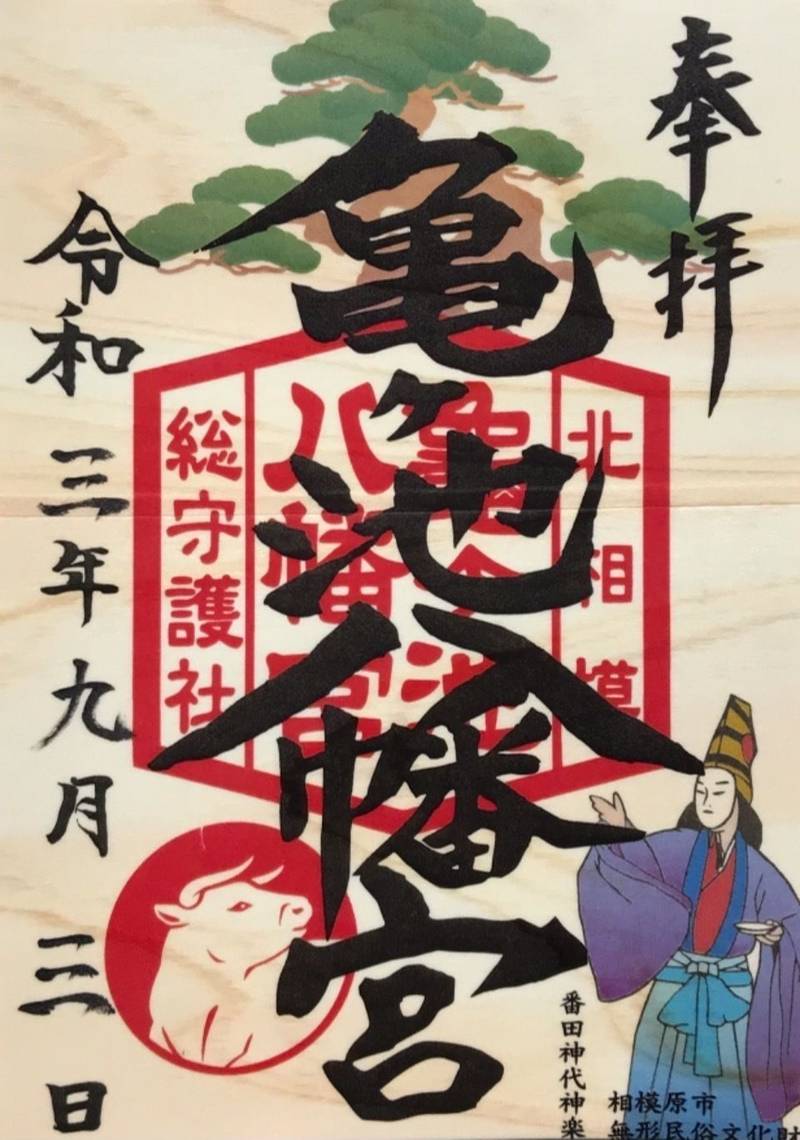 奉拝
亀ヶ池八幡宮
北相模
亀今池
八幡宮
総守護社
令和三年九月三日
番田神代神楽
相模原市
無形民俗文化財